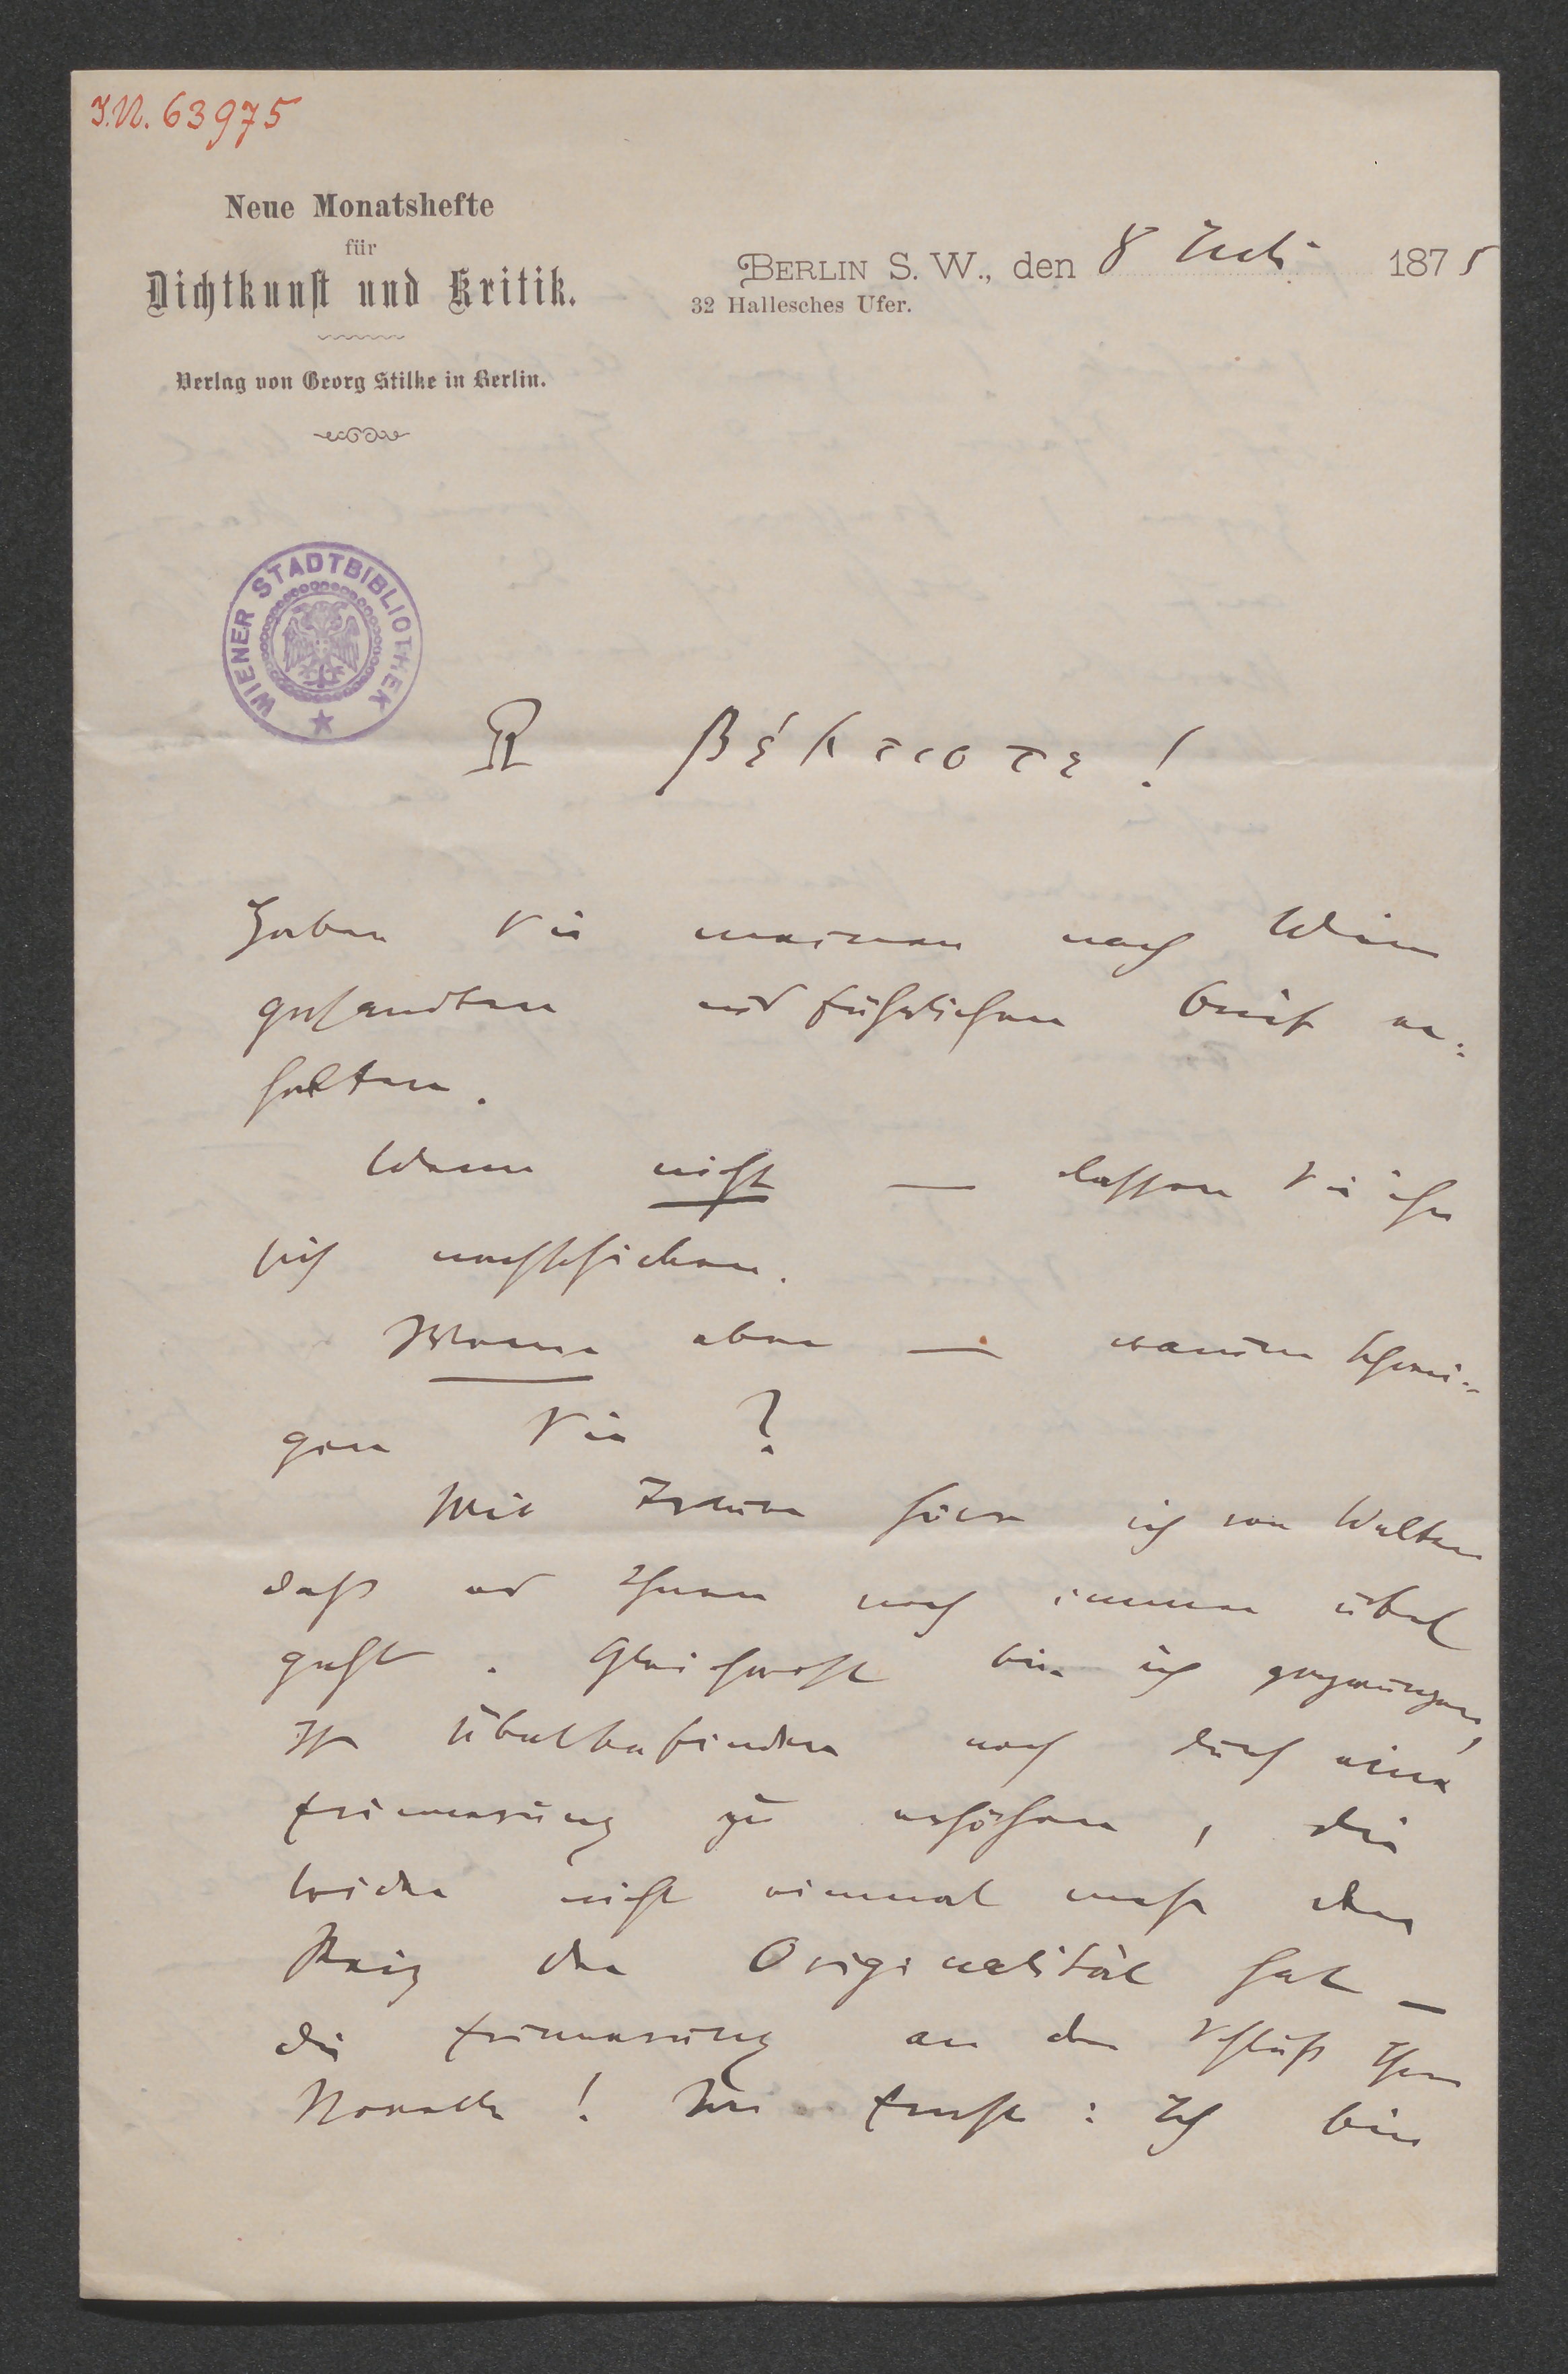 I.N. 63975
Neue Monatshefte
für
Dichtkunst und Kritik.
Verlag von Georg Stilke in Berlin.
BERLIN S. W., den 8 Juli 1875
32 Hallesches Ufer.
WIENER STADTBIBLIOTHEK
βέλτιστε!
Haben Sie meinen nach Wien
gesandten ausführlichen Brief er-
halten.
Wenn nicht — lassen Sie ihn
sich nachschicken.
Wenn aber — warum schwei-
gen Sie?
Mit Trauer höre ich von Walter
daß es Ihnen noch immer übel
geht. Gleichwohl bin ich gezwungen,
Ihr Übelbefinden noch durch eine
Erinnerung zu erhöhen, die
leider nicht einmal mehr den
Reiz der Originalität hat —
die Erinnerung an den Schluß Ihrer
Novelle! Im Ernste: Ich bin